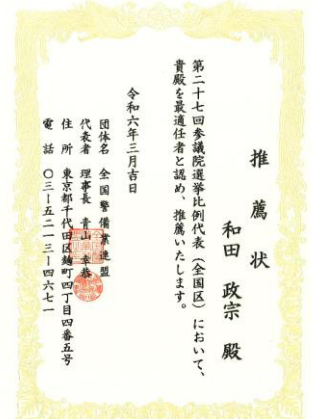 推薦状
和田 政宗 殿
第二十七回参議院選挙比例代表(全国区)において、
貴殿を最適任者と認め、推薦いたします。
令和六年三月吉日
団体名 全国警備業連盟
代表者 理事長 青山 幸恭
住所 東京都千代田区麹町四丁目四番五号
電話 〇三―五二一三―四六七一